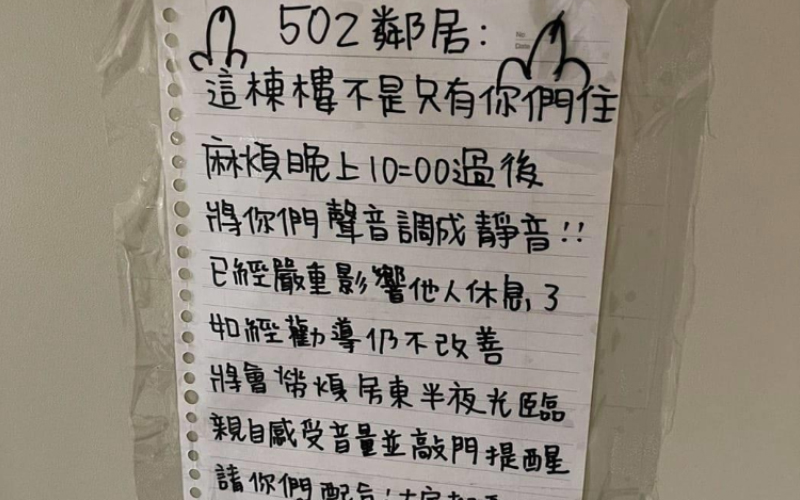 502 鄰居:
No.
Date
這棟樓不是只有你們住
麻煩晚上10:00過後
將你們聲音調成靜音!!
已經嚴重影響他人休息了
如經勸導仍不改善
將會勞煩房東半夜光臨
親自感受音量並敲門提醒
請你們配合!大家都